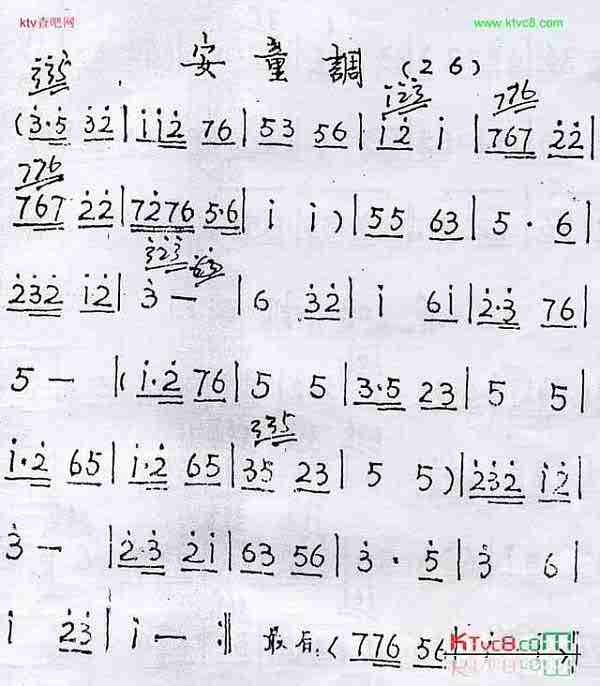 ktv查吧网
www.ktvc8.com
安童調 (2 6)
3̇3̇5̇
1̇2̇3̇ 776
(3̇·5̇ 3̇2̇ | 1̇1̇2̇ 76 | 53 56 | 1̇2̇ 1̇ | 767 2̇2̇ |
776
767 2̇2̇ | 72̇76 5·6 | 1̇ 1̇ ) | 55 63 | 5 · 6 |
3̇2̇3̇
2̇3̇2̇ 1̇2̇ | 3̇ — | 6 3̇2̇ | 1̇ 61̇ | 2̇·3̇ 76 |
5 — | (1̇·2̇ 76 | 5 5 | 3·5 23 | 5 5 |
335
1̇·2̇ 65 | 1̇·2̇ 65 | 35 23 | 5 5 ) | 2̇3̇2̇ 1̇2̇ |
3̇ — | 2̇·3̇ 2̇1̇ | 63 56 | 3̇ · 5̇ | 3̇ 6 |
1̇ 2̇3̇ | 1̇ — :‖ 最后:( 776 56
KTVC8.com